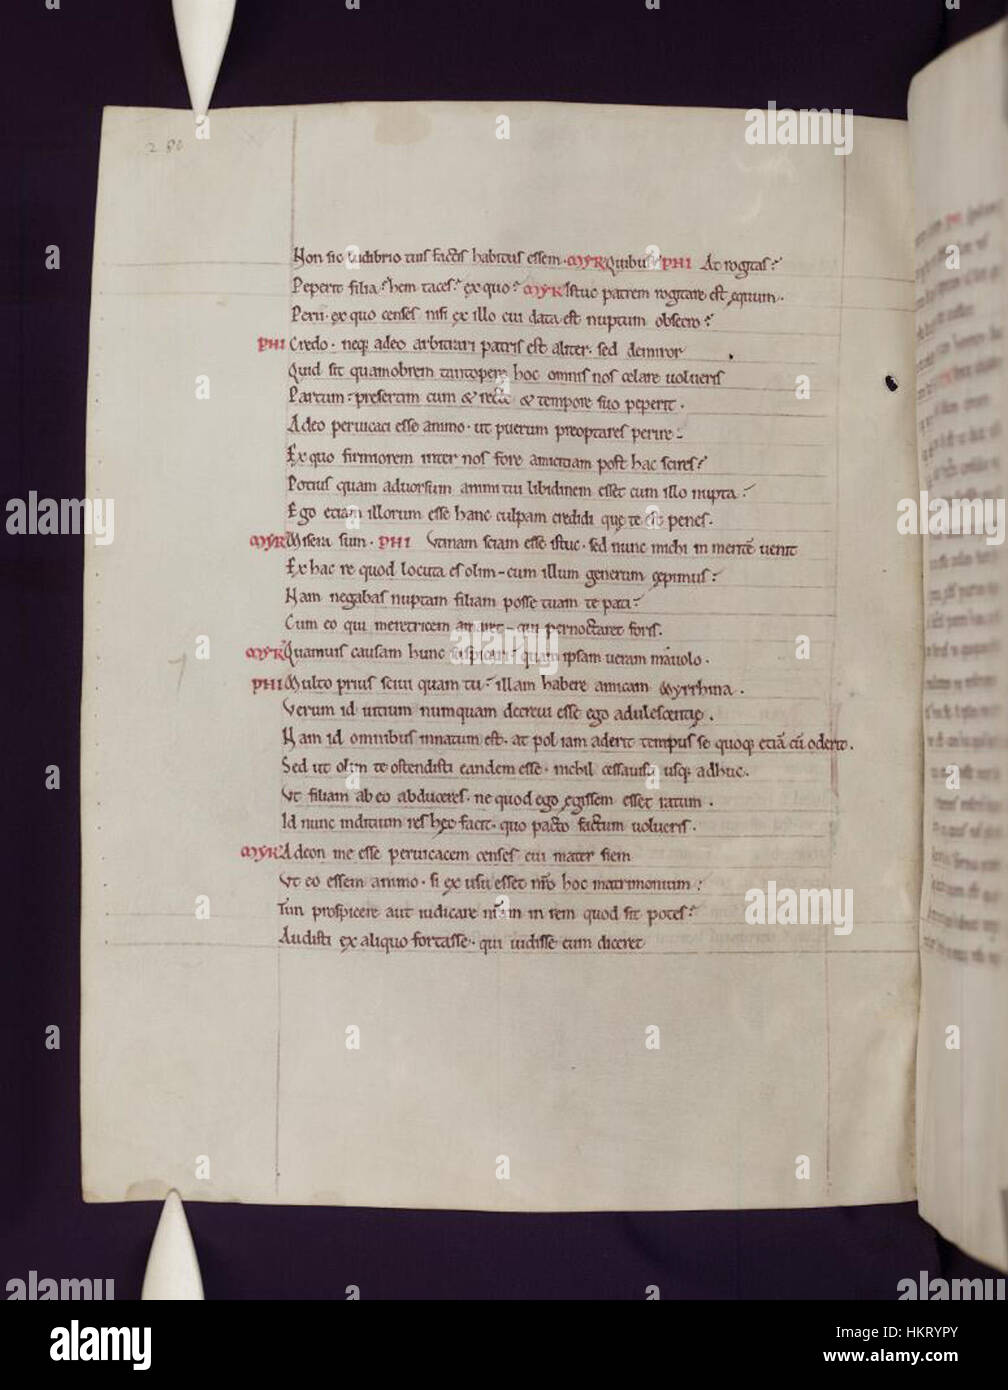 280
Non sic ludibrio tuis factis habitus essem · MYR Quibus? PHI At rogitas?
Peperit filia? hem taces? ex quo? MYR Istuc patrem rogitare est ęquum.
Perii · ex quo censes nisi ex illo cui data est nuptum obsecro?
PHI Credo · neq; adeo arbitrari patris est aliter · sed demiror
Quid sit quamobrem tantopere hoc omnis nos celare uolueris
Partum? presertim cum & recte & tempore suo peperit.
Adeo peruicaci esse animo · ut puerum preoptares perire
Ex quo firmiorem inter nos fore amicitiam post hac scires?
Potius quam aduorsum animi tui libidinem esset cum illo nupta?
Ego etiam illorum esse hanc culpam credidi quę te est penes.
MYR Misera sum · PHI Utinam sciam esse istuc · sed nunc michi in mentē uenit
Ex hac re quod locuta es olim cum illum generum cępimus?
Nam negabas nuptam filiam posse tuam te pati?
Cum eo qui meretricem amaret qui pernoctaret foris.
MYR Quamuis causam hunc suspicari quam ipsam ueram mauolo.
PHI Multo prius sciui quam tu? illam habere amicam Myrrhina.
Verum id uitium numquam decreui esse ego adulescentię.
Nam id omnibus innatum est · at pol iam aderit tempus se quoq; etiā cū oderit.
Sed ut olim te ostendisti eandem esse · nichil cessauisti usq; adhuc.
Ut filiam ab eo abduceres · ne quod ego ęgissem esset ratum.
Id nunc inditium res hęc facit · quo pacto factum uolueris.
MYR Adeon me esse peruicacem censes cui mater siem
Ut eo essem animo · si ex usu esset nr̄o hoc matrimonium?
Tun prospicere aut iudicare nr̄am in rem quod sit potes?
Audisti ex aliquo fortasse · qui uidisse eum diceret
alamy
Image ID: HKRYPY
www.alamy.com